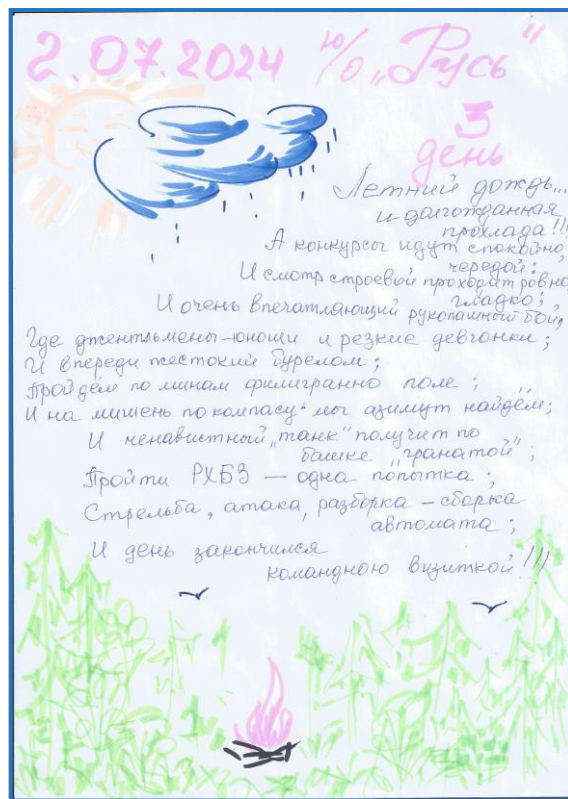 2.07.2024 ю/о „Русь"
3
день
Летний дождь...
и долгожданная
прохлада!!!
А конкурсы идут спокойно,
чередой;
И смотр строевый проходит ровно,
гладко;
И очень впечатляющий рукопашный бой,
Где джентльмены-юноши и резкие девчонки;
И впереди жестокий бурелом;
Пройдём по минам филигранно поле;
И на мишень по компасу мы азимут найдём;
И ненавистный „танк" получит по
башке „гранатой";
Пройти РХБЗ — одна попытка;
Стрельба, атака, разборка – сборка
автомата;
И день закончился
командною визиткой!!!